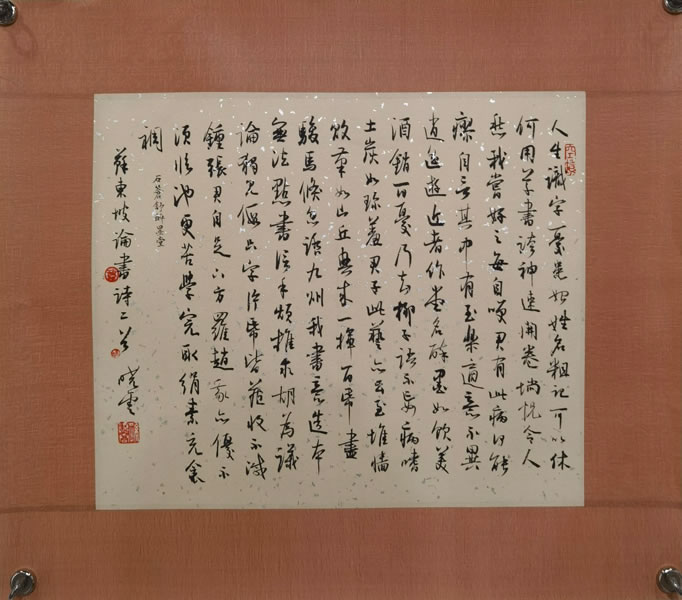 人生識字憂患始姓名粗記可以休
何用草書誇神速開卷惝恍令人
愁我嘗好之每自笑君有此病何能
瘳自言其中有至樂適意不異
逍遙遊近者作堂名醉墨如飲美
酒銷百憂乃知柳子語不妄病嗜
土炭如珍羞君于此藝亦云至堆牆
敗筆如山丘興來一揮百紙盡
駿馬倏忽踏九州我書意造本
無法點畫信手煩推求胡為議
論獨見假只字片紙皆藏收不減
鍾張君自足下方羅趙我亦優不
須臨池更苦學完取絹素充衾
裯
石蒼舒醉墨堂
蘇東坡論書詩二首 曉雲